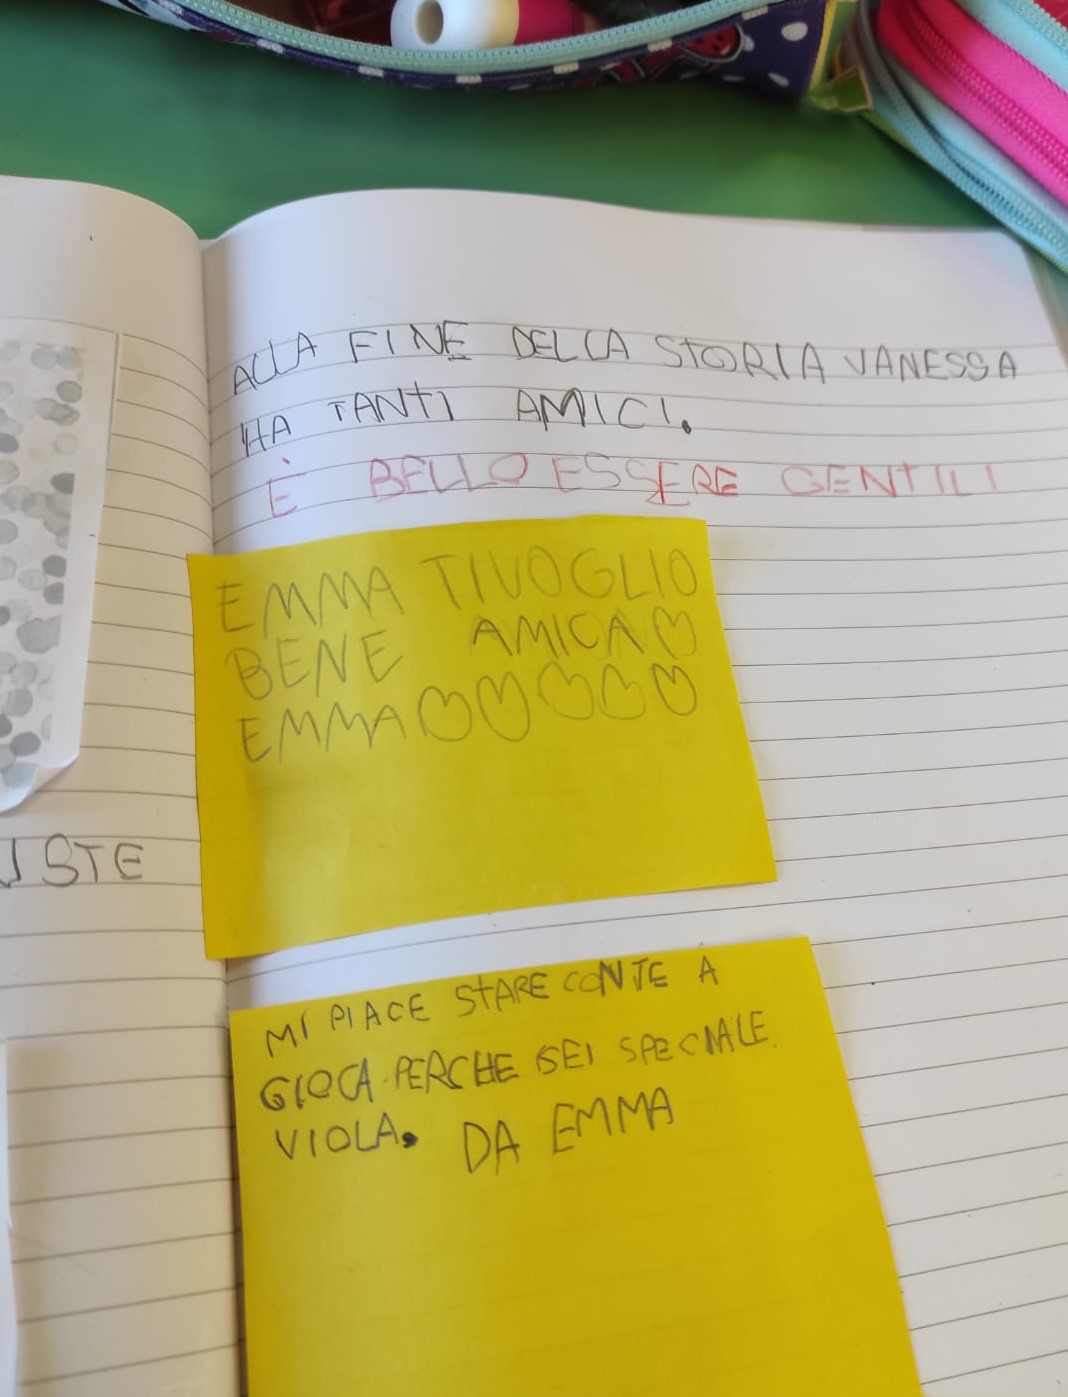 ALLA FINE DELLA STORIA VANESSA
HA TANTI AMICI.
È BELLO ESSERE GENTILI
EMMA TI VOGLIO
BENE AMICA♡
EMMA♡♡♡♡♡
MI PIACE STARE CON TE A
GIOCA. PERCHE SEI SPECIALE.
VIOLA. DA EMMA